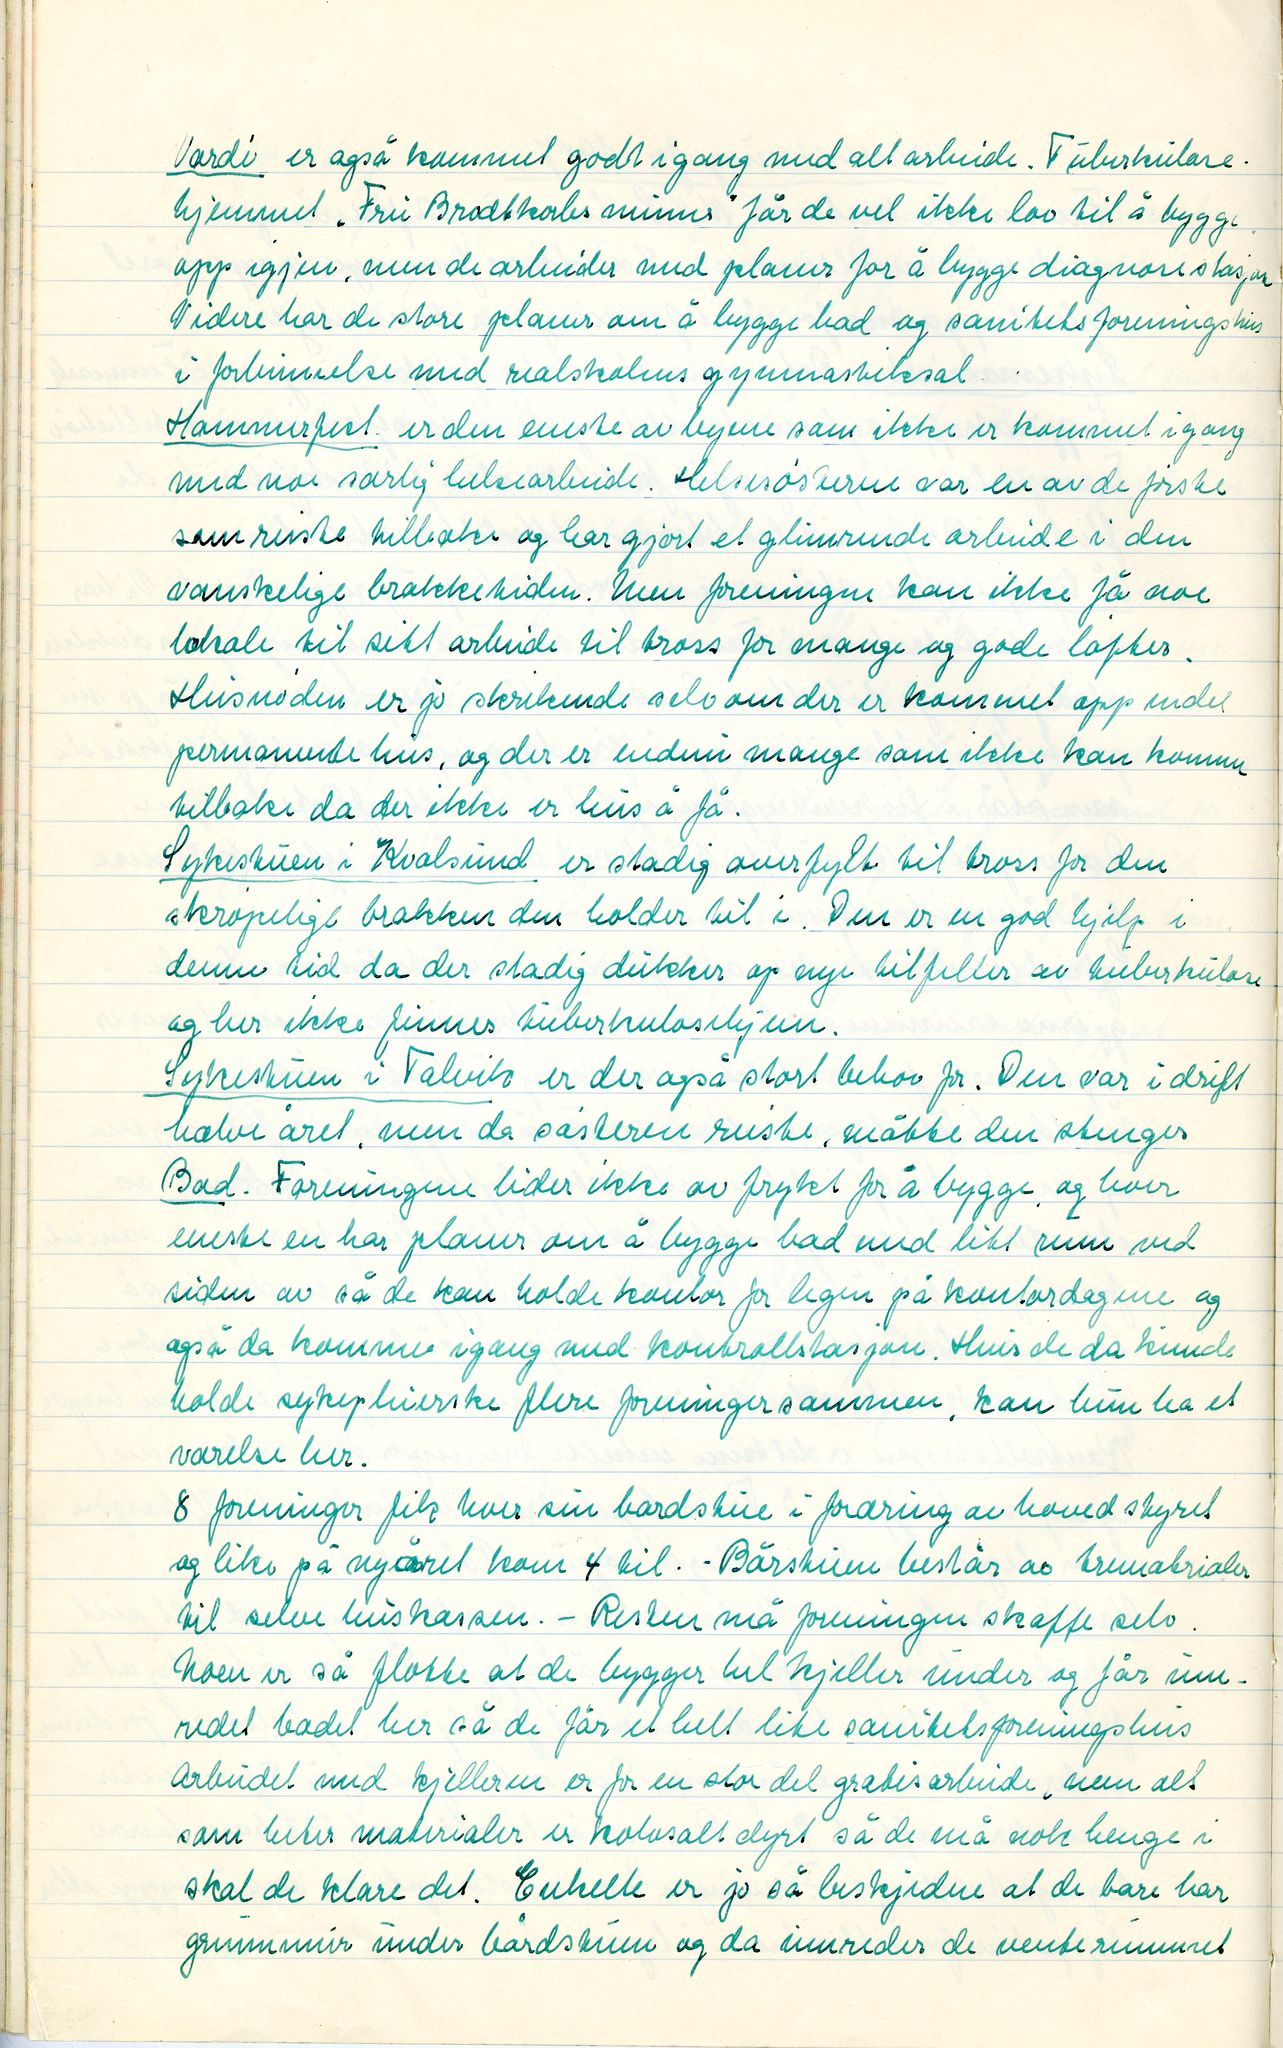 Vardö er også kommet godt igang med alt arbeide. Tuberkulose-
hjemmet "Fru Brodtkorbs minne" får de vel ikke lov til å bygge
opp igjen, men de arbeider med planer for å bygge diagnosestasjon
Videre har de store planer om å bygge bad og sanitetsforeningshus
i forbinnelse med realskolens gymnastiksal
Hammerfest er den eneste av byene som ikke er kommet igang
med noe særlig helsearbeide. Helsesösterne var en av de förste
som reiste tilbake og har gjort et glimrende arbeide i den
vanskelige brakketiden. Men foreningen kan ikke få noe
lokale til sitt arbeide til tross for mange og gode löfter.
Husnöden er jo skrikende selv om der er kommet opp endel
permanente hus, og der er endnu mange som ikke kan komme
tilbake da der ikke er hus å få.
Sykestuen i Kvalsund er stadig overfylt til tross for den
skröpelige brakken den holder til i. Den er en god hjelp i
denne tid da der stadig dukker op nye tilfeller av tuberkulose
og her ikke finnes tuberkulosehjem.
Sykestuen i Talvik er der også stort behov for. Den var i drift
halve året, men da sösteren reiste, måtte den stenges
Bad. Foreningene lider ikke av frykt for å bygge, og hver
eneste en har planer om å bygge bad med litt rum ved
siden av så de kan holde kontor for legen på kontordagene og
også da komme igang med kontrollstasjon. Hvis de da kunde
holde sykepleierske flere foreninger sammen, kan hun ha et
værelse her.
8 foreninger fik hver sin badstue i foræring av hovedstyret
og like på nyåret kom 4 til. - Bastuen består av trematerialer
til selve huskassen. - Resten må foreningen skaffe selv.
Noen er så flotte at de bygger hel kjeller under og får inn-
redet badet her så de får et helt lite sanitetsforeningshus
Arbeidet med kjelleren er for en stor del gratisarbeide, men alt
som heter materialer er kolosalt dyrt så de må nok henge i
skal de klare det. Enkelte er jo så beskjedne at de bare har
grunnmur under bådstuen og da innreder de venterummet